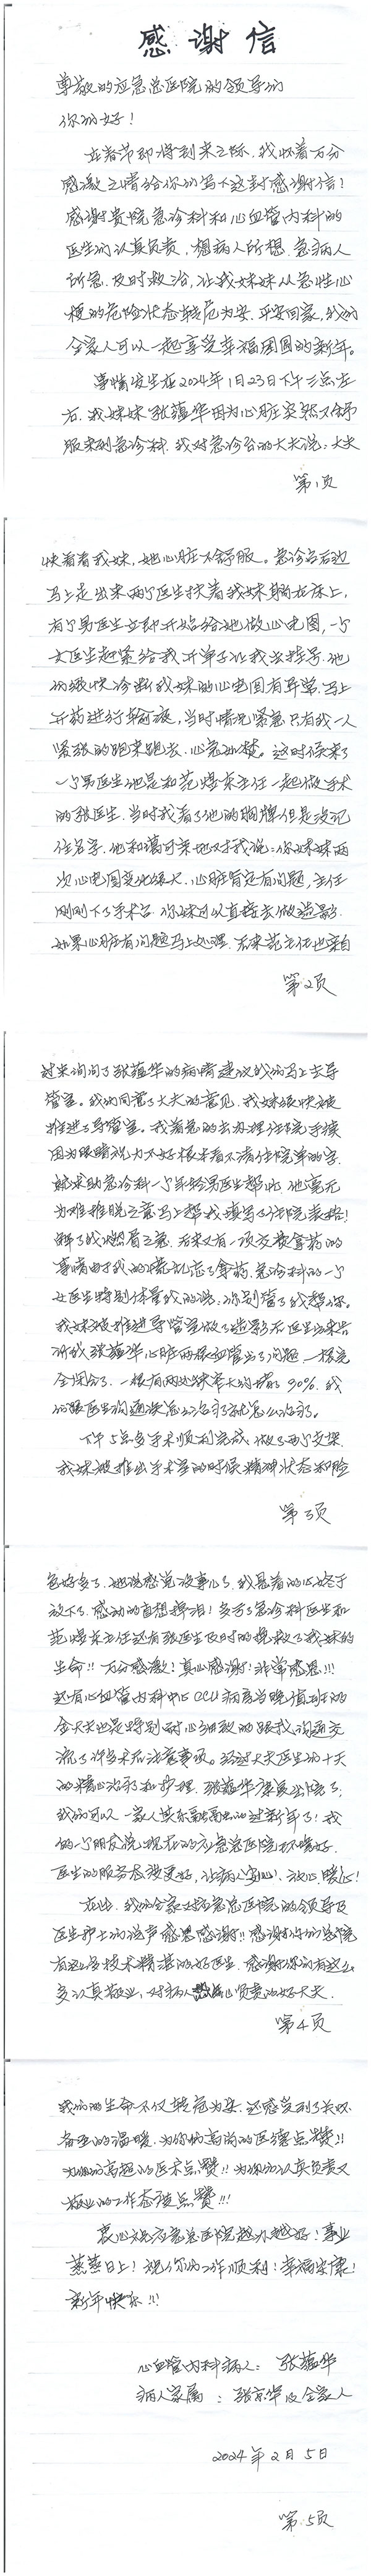 感谢信
尊敬的应急总医院的领导们
你们好!
在春节即将到来之际,我怀着万分
感激之情给你们写下这封感谢信!
感谢贵院急诊科和心血管内科的
医生们认真负责,想病人所想,急病人
所急,及时救治,让我妹妹从急性心
梗的危险状态转危为安,平安回家,我们
全家人可以一起享受幸福团圆的新年。
事情发生在2024年1月23日下午三点左
右,我妹妹张蕴华因为心脏突然不舒
服来到急诊科,我对急诊台的大夫说:大夫
第1页
快看看我妹,她心脏不舒服。急诊台后边
马上走出来两个医生扶着我妹躺在床上,
有个男医生立即开始给她做心电图,一个
女医生赶紧给我开单子让我去挂号,他
们很快诊断我妹的心电图有异常,马上
开药进行输液,当时情况紧急只有我一人
紧张的跑来跑去,心急如焚。这时候来了
一个男医生他是和范煜东主任一起做手术
的张医生,当时我看了他的胸牌但是没记
住名字,他和蔼可亲地对我说:你妹妹两
次心电图变化很大,心脏肯定有问题,主任
刚刚下了手术台,你妹可以直接去做造影,
如果心脏有问题马上处理,后来范主任也亲自
第2页
过来询问了张蕴华的病情建议我们马上去导
管室。我们同意了大夫的意见,我妹很快被
推进了导管室。我着急的去办理住院手续
因为眼睛视力不好根本看不清住院单的字,
就求助急诊科一个年轻男医生帮忙,他毫无
为难推脱之意马上帮我填写了住院表格!
解了我燃眉之急,后来又有一项交费拿药的
事情由于我的慌乱忘了拿药,急诊科的一个
女医生特别体量我的说:你别管了我帮你。
我妹被推进导管室做了造影后医生出来告
诉我张蕴华心脏两根血管出了问题,一根完
全闭合了,一根有两处狭窄大约堵了90%,我
们跟医生沟通决定怎么治就怎么治了。
下午5点多手术顺利完成,做了两个支架,
我妹被推出手术室的时候精神状态和脸
第3页
色好多了,她说感觉没事儿了,我悬着的心终于
放下了,感动的直想掉泪!多亏了急诊科医生和
范煜东主任还有张医生及时的挽救了我妹的
生命!!万分感激!真心感谢!非常感恩!!!
还有心血管内科中心CCU病房当晚值班的
金大夫也是特别耐心细致的跟我沟通交
流了许多术后注意事项。经过大夫医生们十天
的精心治疗和护理,张蕴华康复出院了,
我们可以一家人其乐融融的过新年了!我
的一个朋友说:现在的应急总医院环境好,
医生的服务态度更好,让病人安心、放心、暖心!
在此,我们全家对应急总医院的领导及
医生护士们说声感恩感谢!!感谢你们总院
有这么多技术精湛的好医生,感谢你们有这么
多认真敬业,对病人心负责的好大夫,
第4页
我们的生命不仅转危为安,还感受到了关怀
备至的温暖,为你们高尚的医德点赞!!
为你们高超的医术点赞!!为你们认真负责又
敬业的工作态度点赞!!!
衷心祝应急总医院越办越好!事业
蒸蒸日上!祝你们工作顺利!幸福安康!
新年快乐!!!
心血管内科病人: 张蕴华
病人家属 : 张京华及全家人
2024年2月5日
第5页